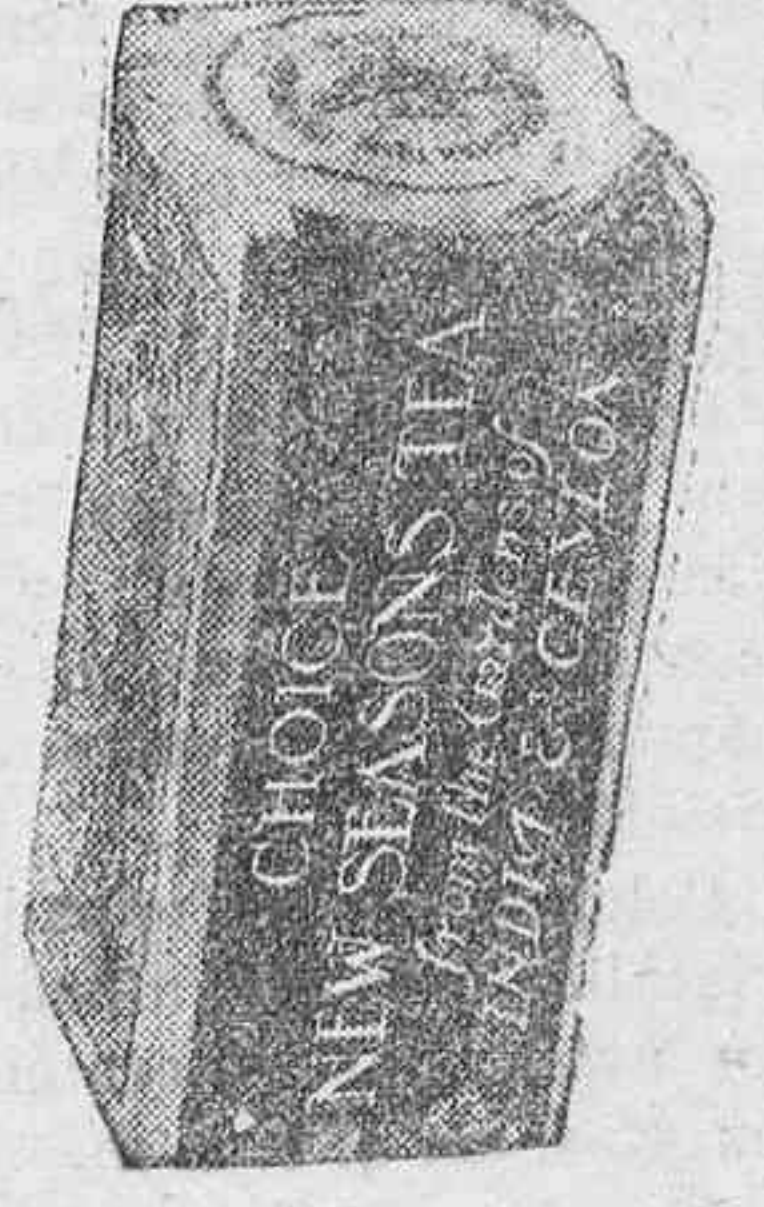 CHOICE
NEW SEASONS TEA
from the Gardens of
INDIA & CEYLON